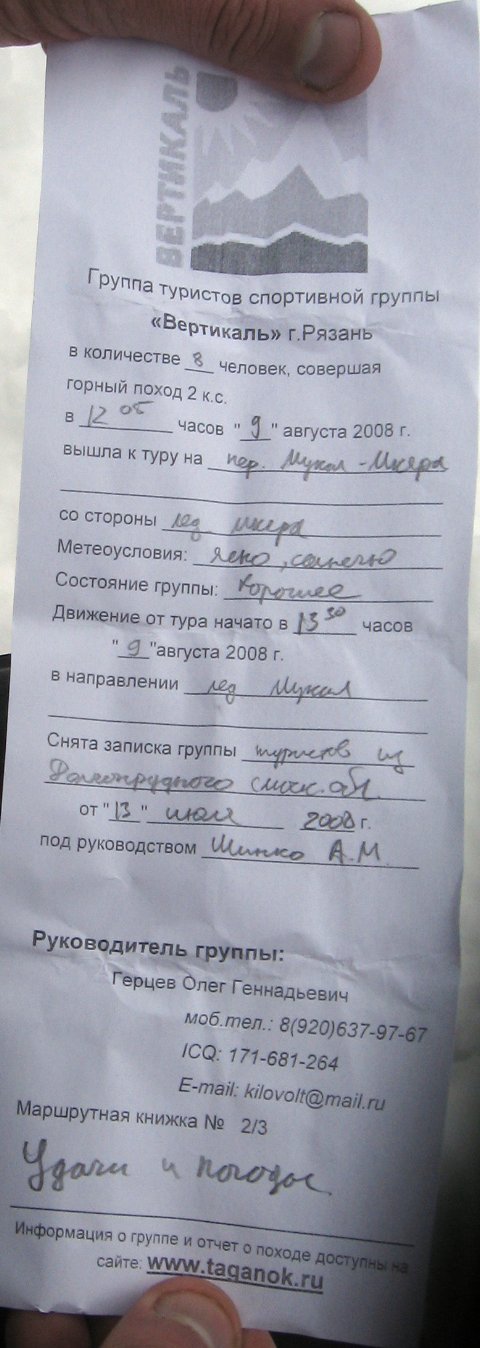 ВЕРТИКАЛЬ
Группа туристов спортивной группы
«Вертикаль» г.Рязань
в количестве 8 человек, совершая
горный поход 2 к.с.
в 12 05 часов "9" августа 2008 г.
вышла к туру на пер. Мукал-Мкяра
со стороны лед мкяра
Метеоусловия: ясно, солнечно
Состояние группы: Хорошее
Движение от тура начато в 13 30 часов
"9"августа 2008 г.
в направлении лед Мукал
Снята записка группы туристов из
Долгопрудного
от "13" июля 2008 г.
под руководством Шинко А.М.
Руководитель группы:
Герцев Олег Геннадьевич
моб.тел.: 8(920)637-97-67
ICQ: 171-681-264
E-mail: kilovolt@mail.ru
Маршрутная книжка № 2/3
Удачи и погоды
Информация о группе и отчет о походе доступны на
сайте: www.taganok.ru